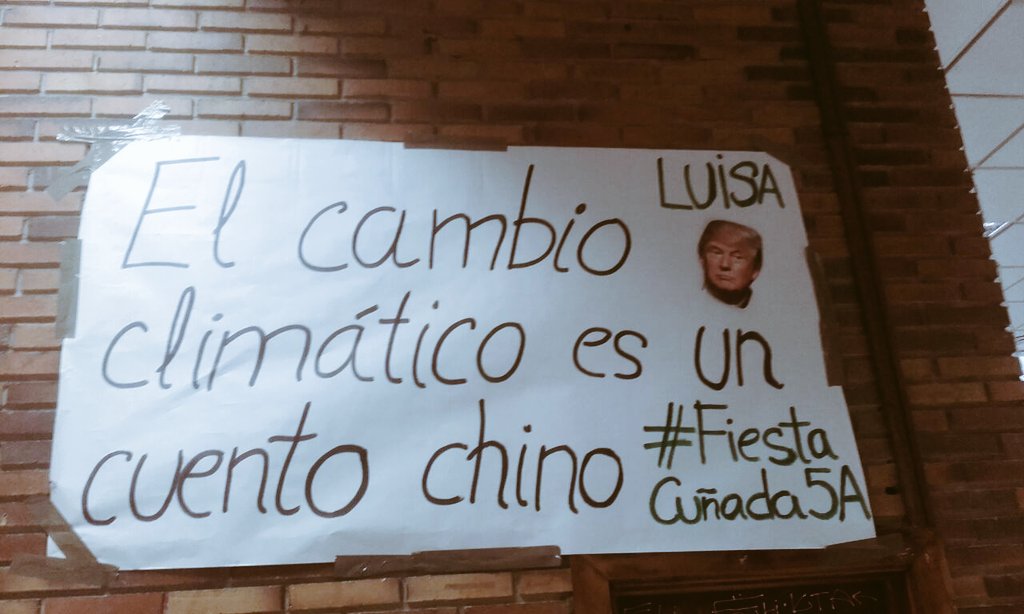 LUISA
El cambio
climático es un
cuento chino
#Fiesta
Cuñada5A